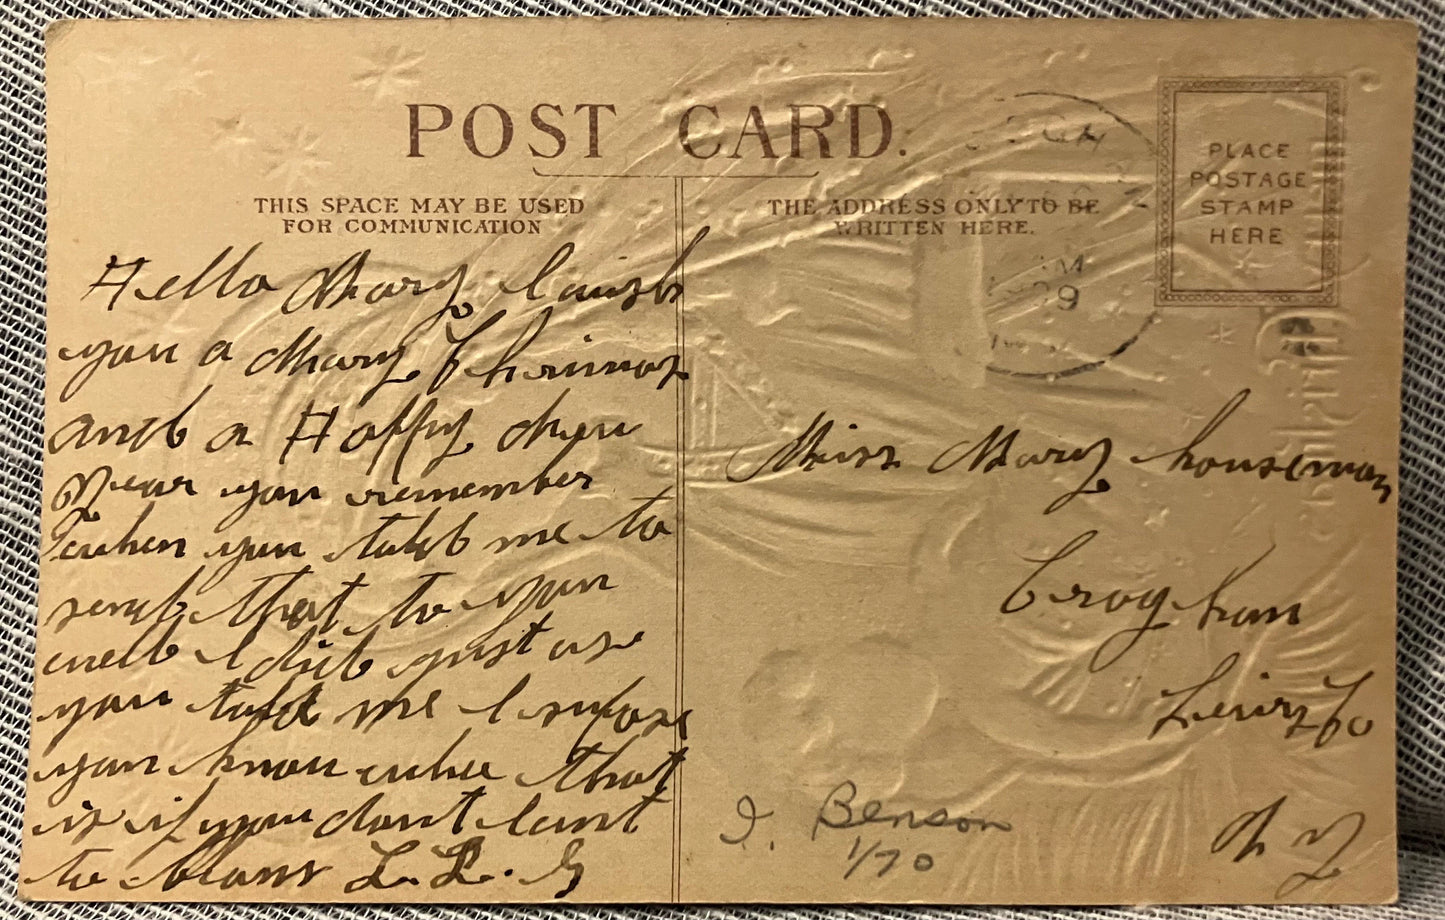 POST CARD.
THIS SPACE MAY BE USED
FOR COMMUNICATION
THE ADDRESS ONLY TO BE
WRITTEN HERE.
PLACE
POSTAGE
STAMP
HERE
Hello Mary I wish
you a Mary Chrimas
and a Happy New
Year you remember
when you told me to
send that to you
well I did just as
you told me I supose
you know who that
is if you dont I aint
to blame L. L. G
Miss Mary houseman
Croghan
Lewis Co
N Y
I. Benson
1/70